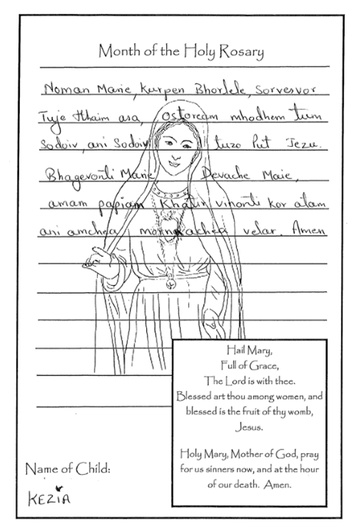 Month of the Holy Rosary
Noman Marie, kurpen Bhorlele, Sorvesvor
Tuje thaim asa, ostoream mhodhem tum
Sodoiv, ani Sodoiv tuzo Put Jezu.
Bhagevonti Marie, Devache Maie,
amam papiam khatir vinonti kor atam
ani amchea mornachea velar. Amen
Hail Mary,
Full of Grace,
The Lord is with thee.
Blessed art thou among women, and
blessed is the fruit of thy womb,
Jesus.
Holy Mary, Mother of God, pray
for us sinners now, and at the hour
of our death. Amen.
Name of Child:
KEZIA